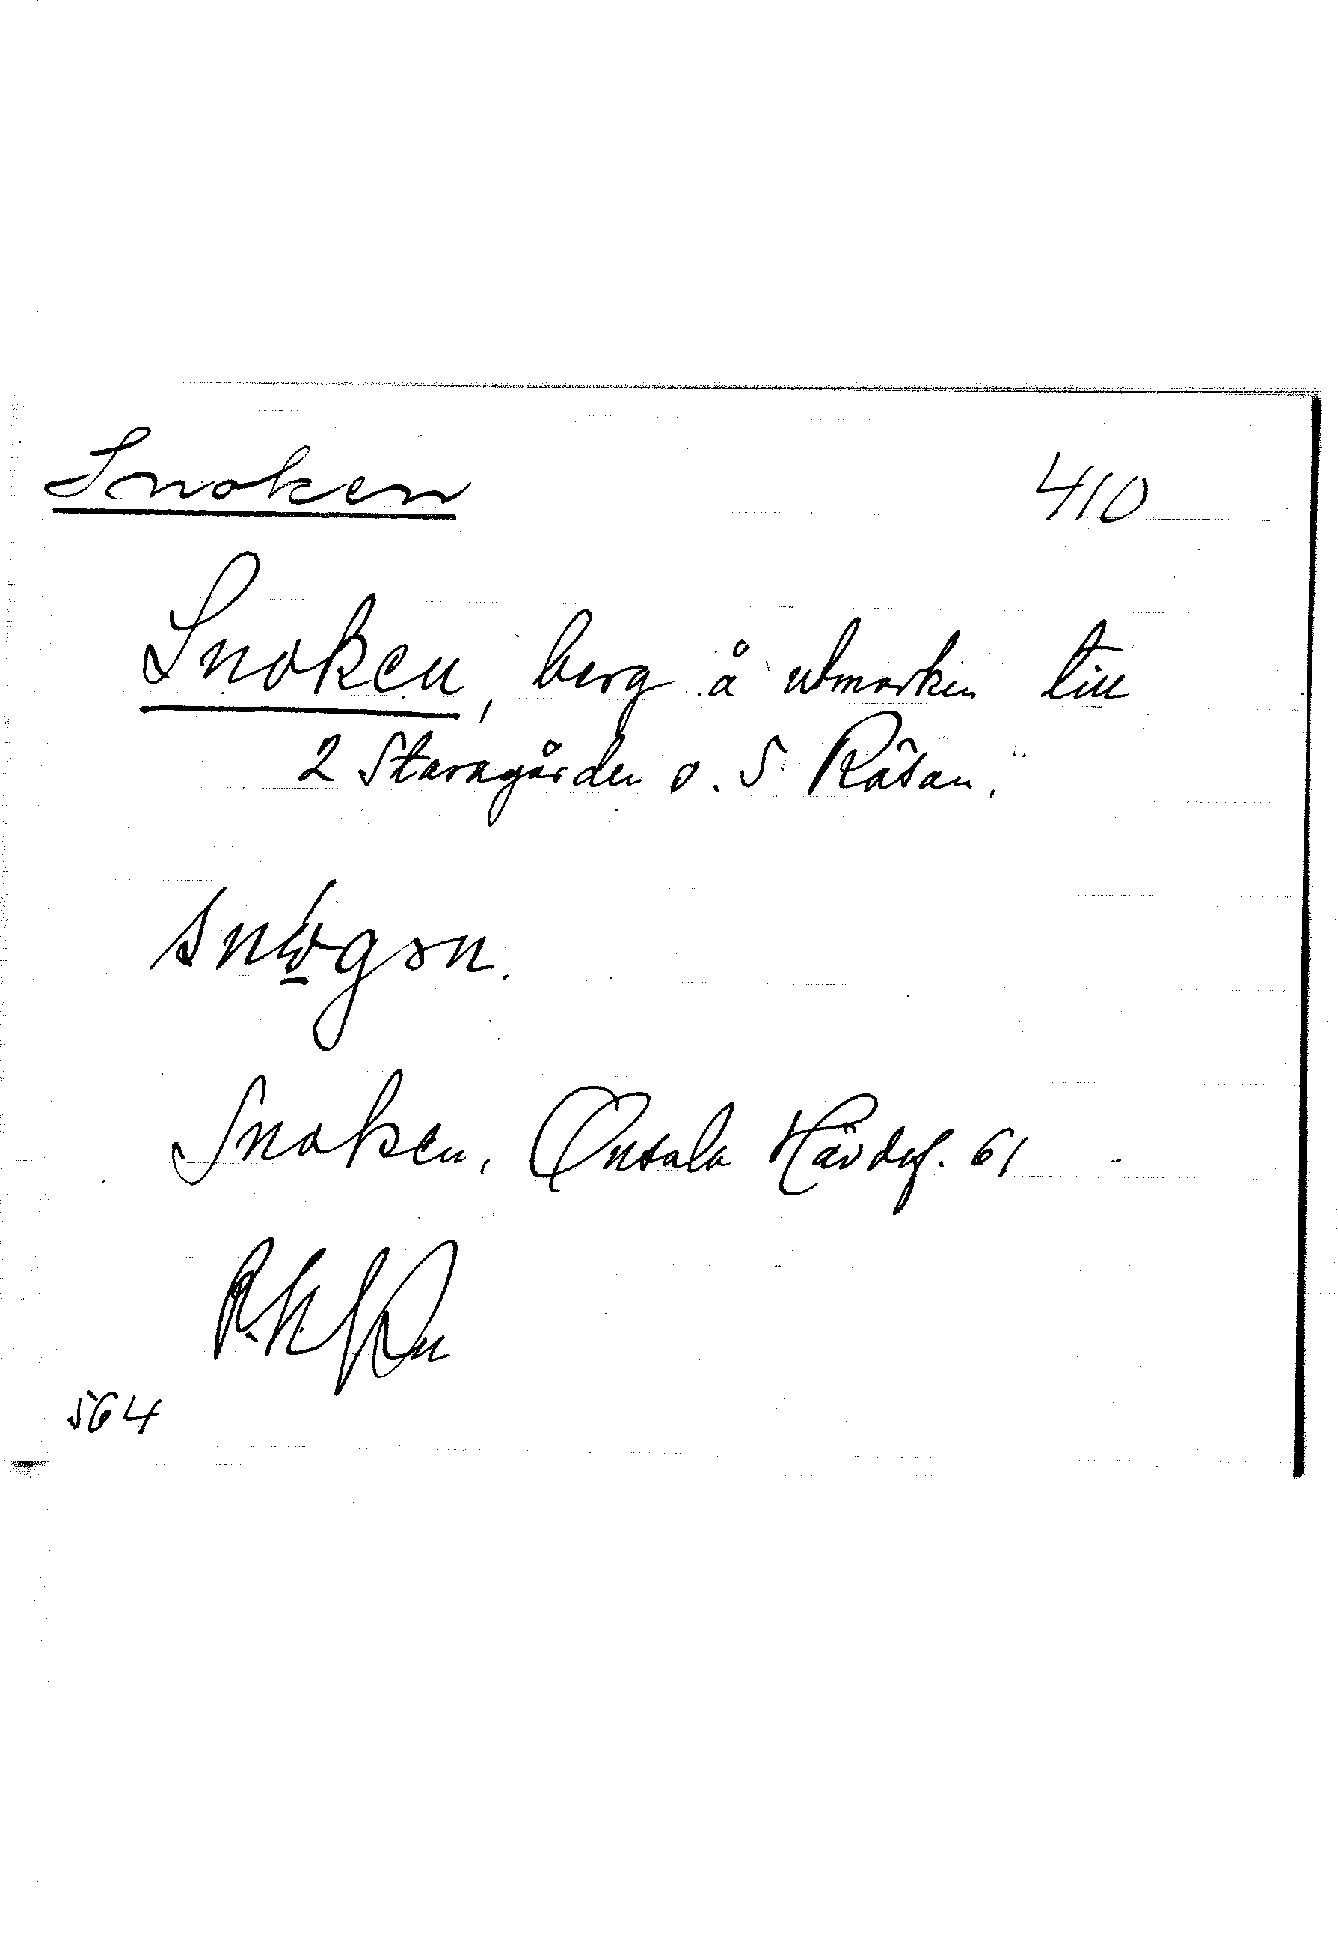 Snoken 410
Snoken, berg å utmarken till
2 Staragården o. 5 Råsan.
Snoken, Onsala Hävdef. 61
564